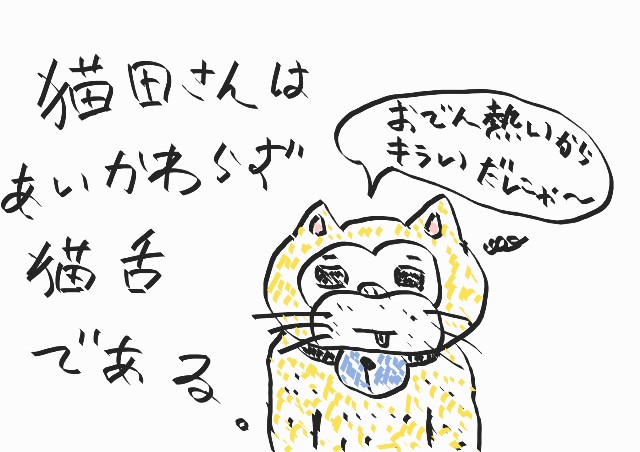 猫田さんは
あいかわらず
猫舌
である。
おでん熱いから
キライだにゃ〜